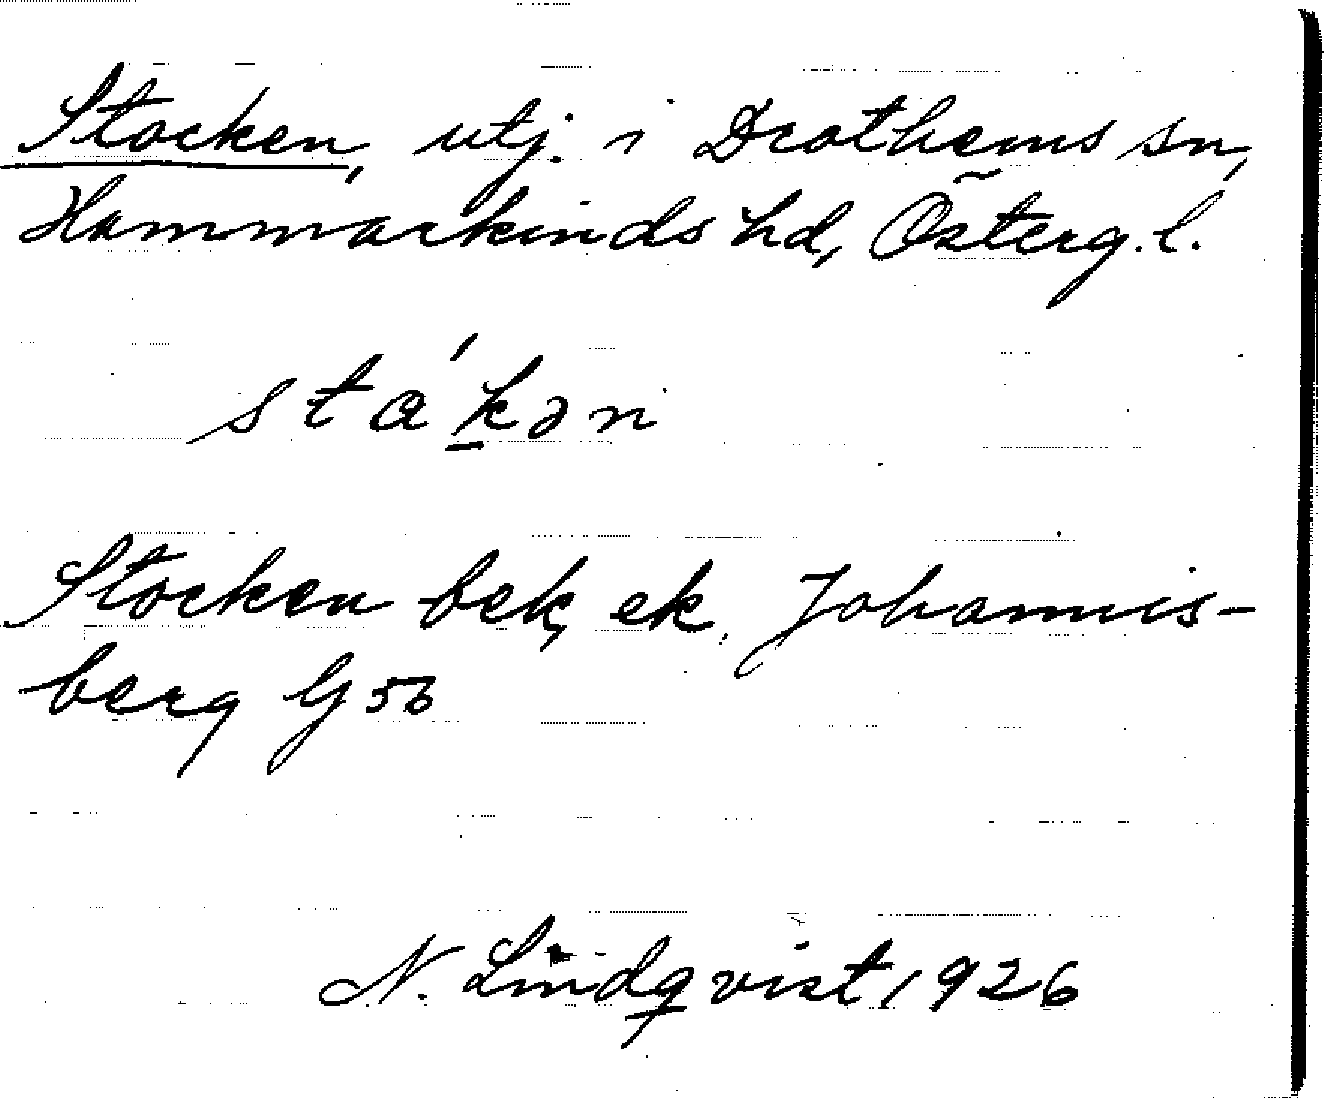 Stocken, utj. i Drothems sn,
Hammarkinds hd, Österg. l.
sta´k̲ən
Stocken bek, ek. Johannis-
berg G 5b
N. Lindqvist 1926